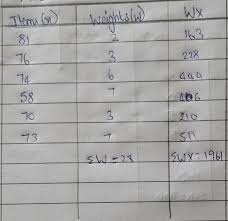 Items (x) Weights (w) WX
81 2 163
76 3 228
74 6 444
58 7 406
70 3 210
73 7 511
ΣW = 28 ΣWX = 1961